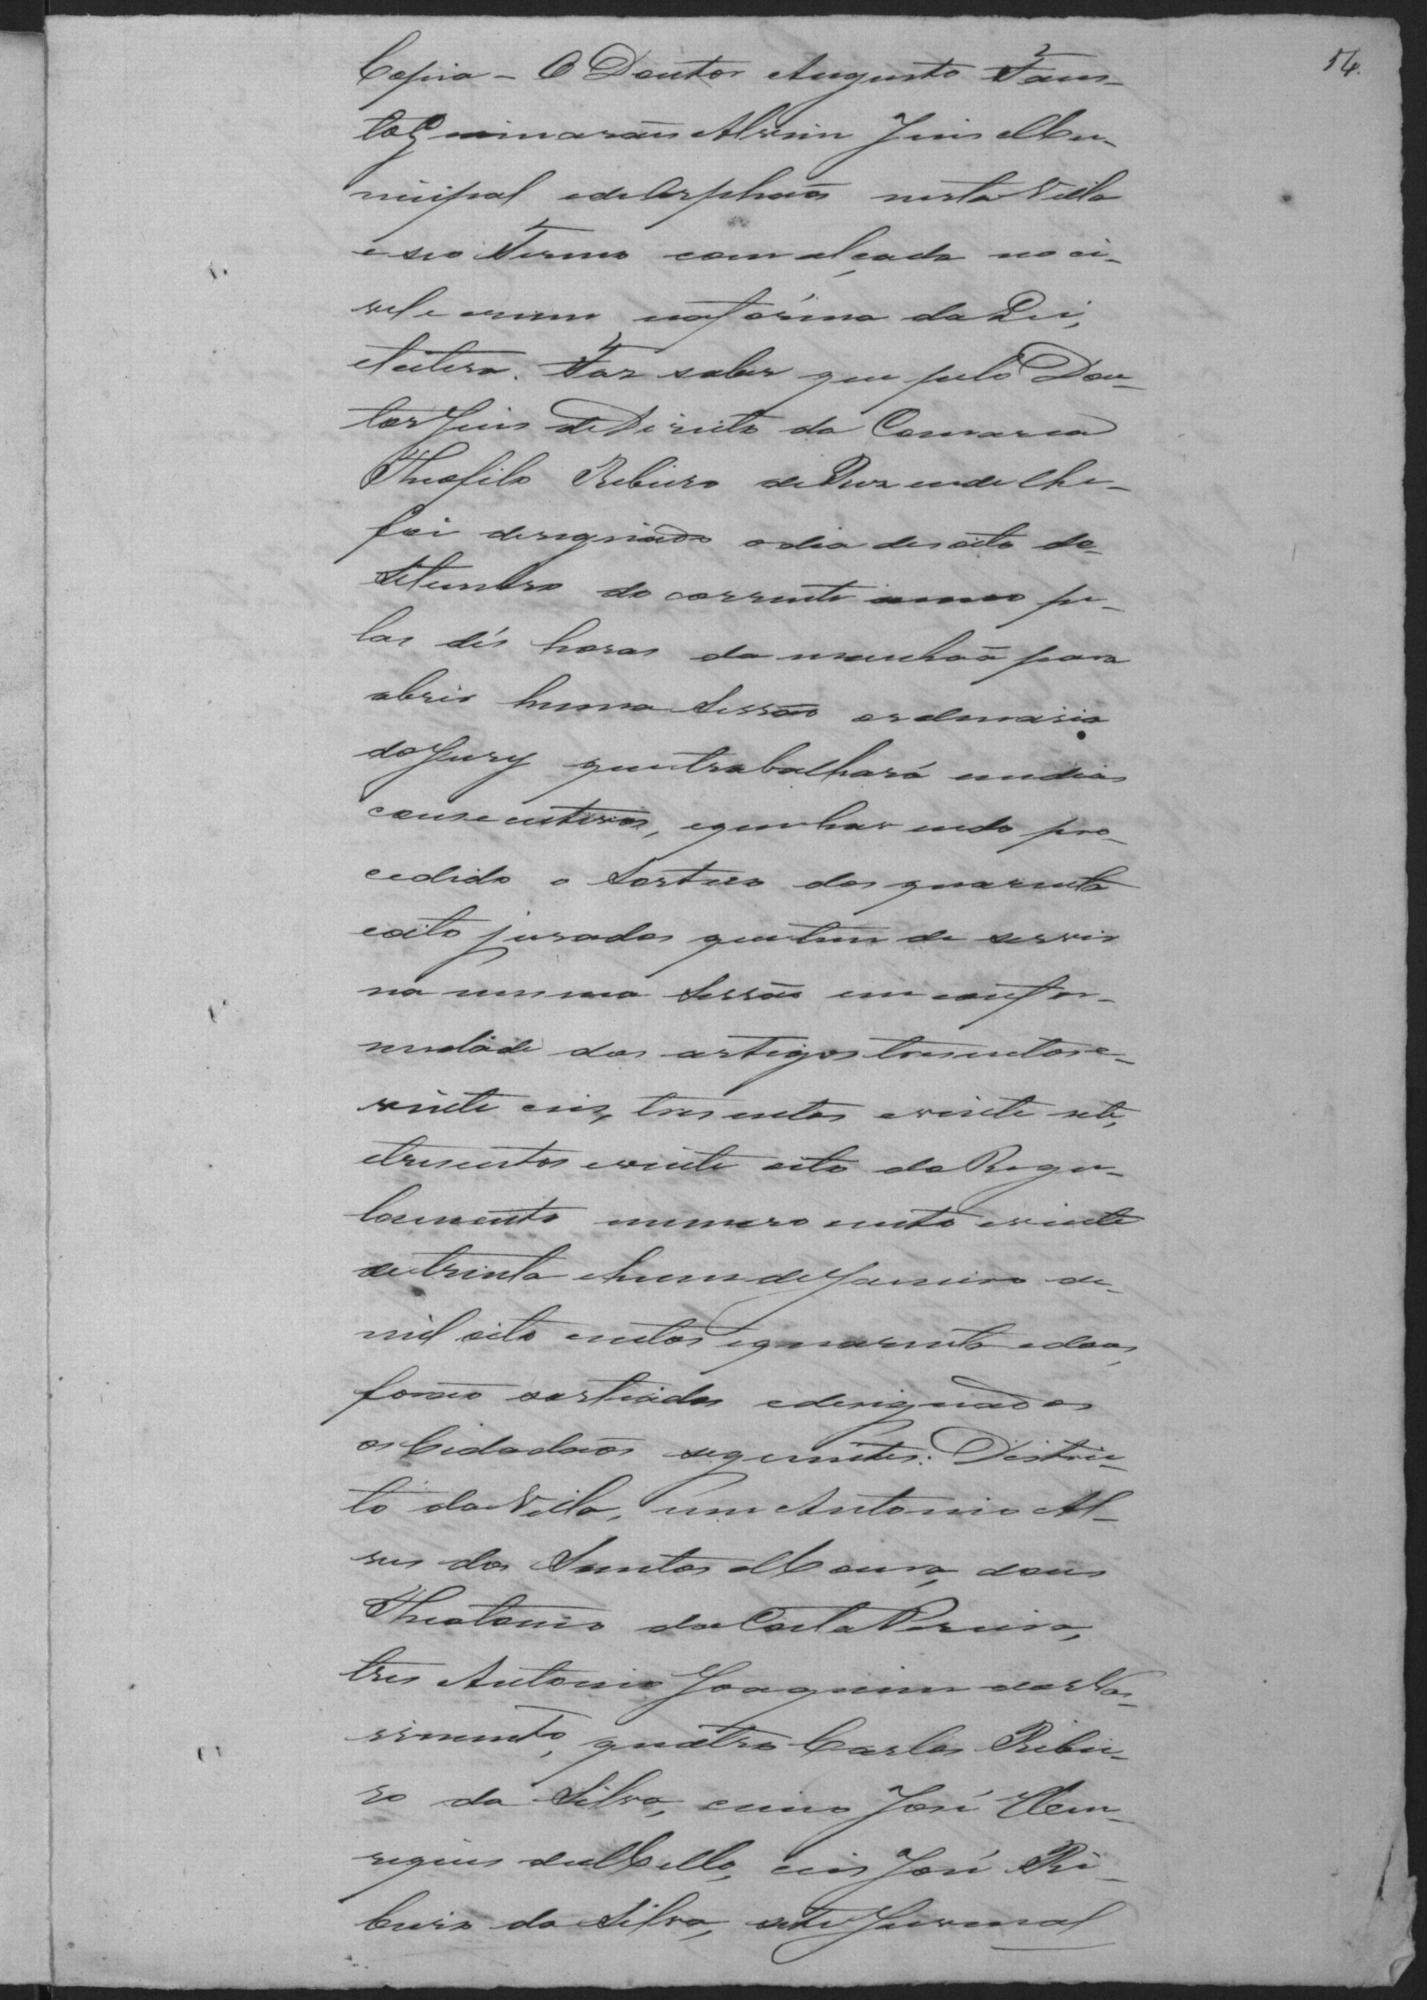 54.
Copia - O Doutor Augusto Faus-
to Guimarães Alvim Juis Mu-
nicipal e de Orphaõs nesta Villa
e seo Termo com alçada no ci-
vel e crime na fórma da Lei,
etcetera. Faz saber que pelo Dou-
tor Juis de Direito da Comarca
Theofilo Ribeiro de Rezende lhe-
foi designado o dia desoito de-
Setembro do corrente anno pe-
las dés horas da manhaõ para
abrir huma Sessão ordenaria
do Jury que trabalhará em dias
consecutivos, e que havendo pro-
cedido o Sorteio dos quarenta
e oito jurados que tem de servir
na mesma Sessão em confor-
midade dos artigos tresentos e-
vinte seis, tresentos e vinte sete,
e tresentos e vinte oito do Regu-
lamento numero cento e vinte
de trinta e hum de Janeiro de-
mil oito centos e quarenta e dous,
foraõ sorteados e designados
os Cidadaõs seguintes: Distric-
to da Villa, um Antonio Al-
ves dos Santos Moura, dous
Theotonio da Costa Pereira,
tres Antonio Joaquim do Nas-
cimento, quatro Carlos Ribei-
ro da Silva, cinco José Hen-
riques de Mello, seis José Ri-
beiro da Silva, sete Juvenal